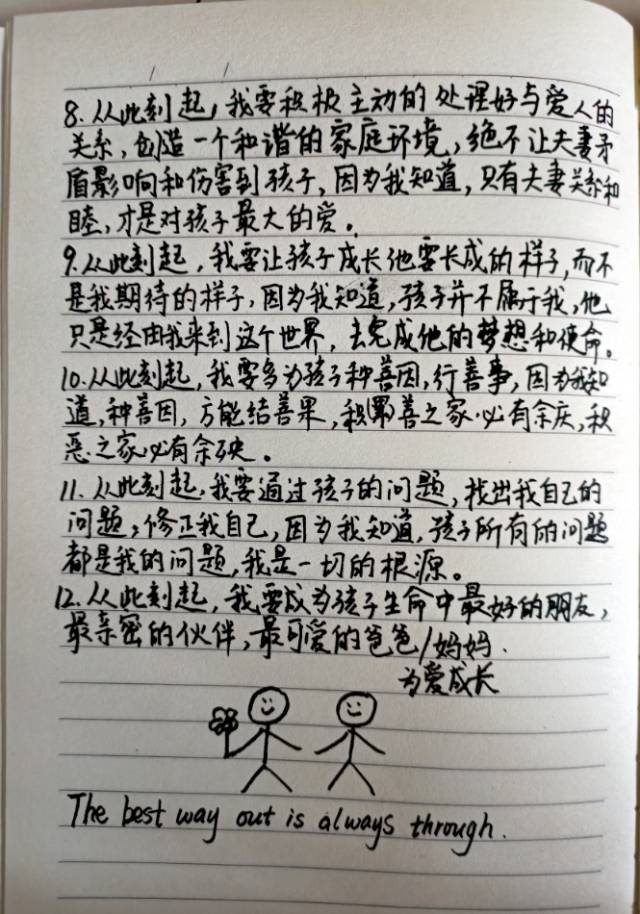 8. 从此刻起，我要积极主动的处理好与爱人的
关系，创造一个和谐的家庭环境，绝不让夫妻矛
盾影响和伤害到孩子，因为我知道，只有夫妻关系和
睦，才是对孩子最大的爱。
9. 从此刻起，我要让孩子成长他要长成的样子，而不
是我期待的样子，因为我知道，孩子并不属于我，他
只是经由我来到这个世界，去完成他的梦想和使命。
10. 从此刻起，我要多为孩子种善因，行善事，因为我知
道，种善因，方能结善果，积累善之家必有余庆，积
恶之家必有余殃。
11. 从此刻起，我要通过孩子的问题，找出我自己的
问题，修正我自己，因为我知道，孩子所有的问题
都是我的问题，我是一切的根源。
12. 从此刻起，我要成为孩子生命中最好的朋友，
最亲密的伙伴，最可爱的爸爸/妈妈.
为爱成长
The best way out is always through.